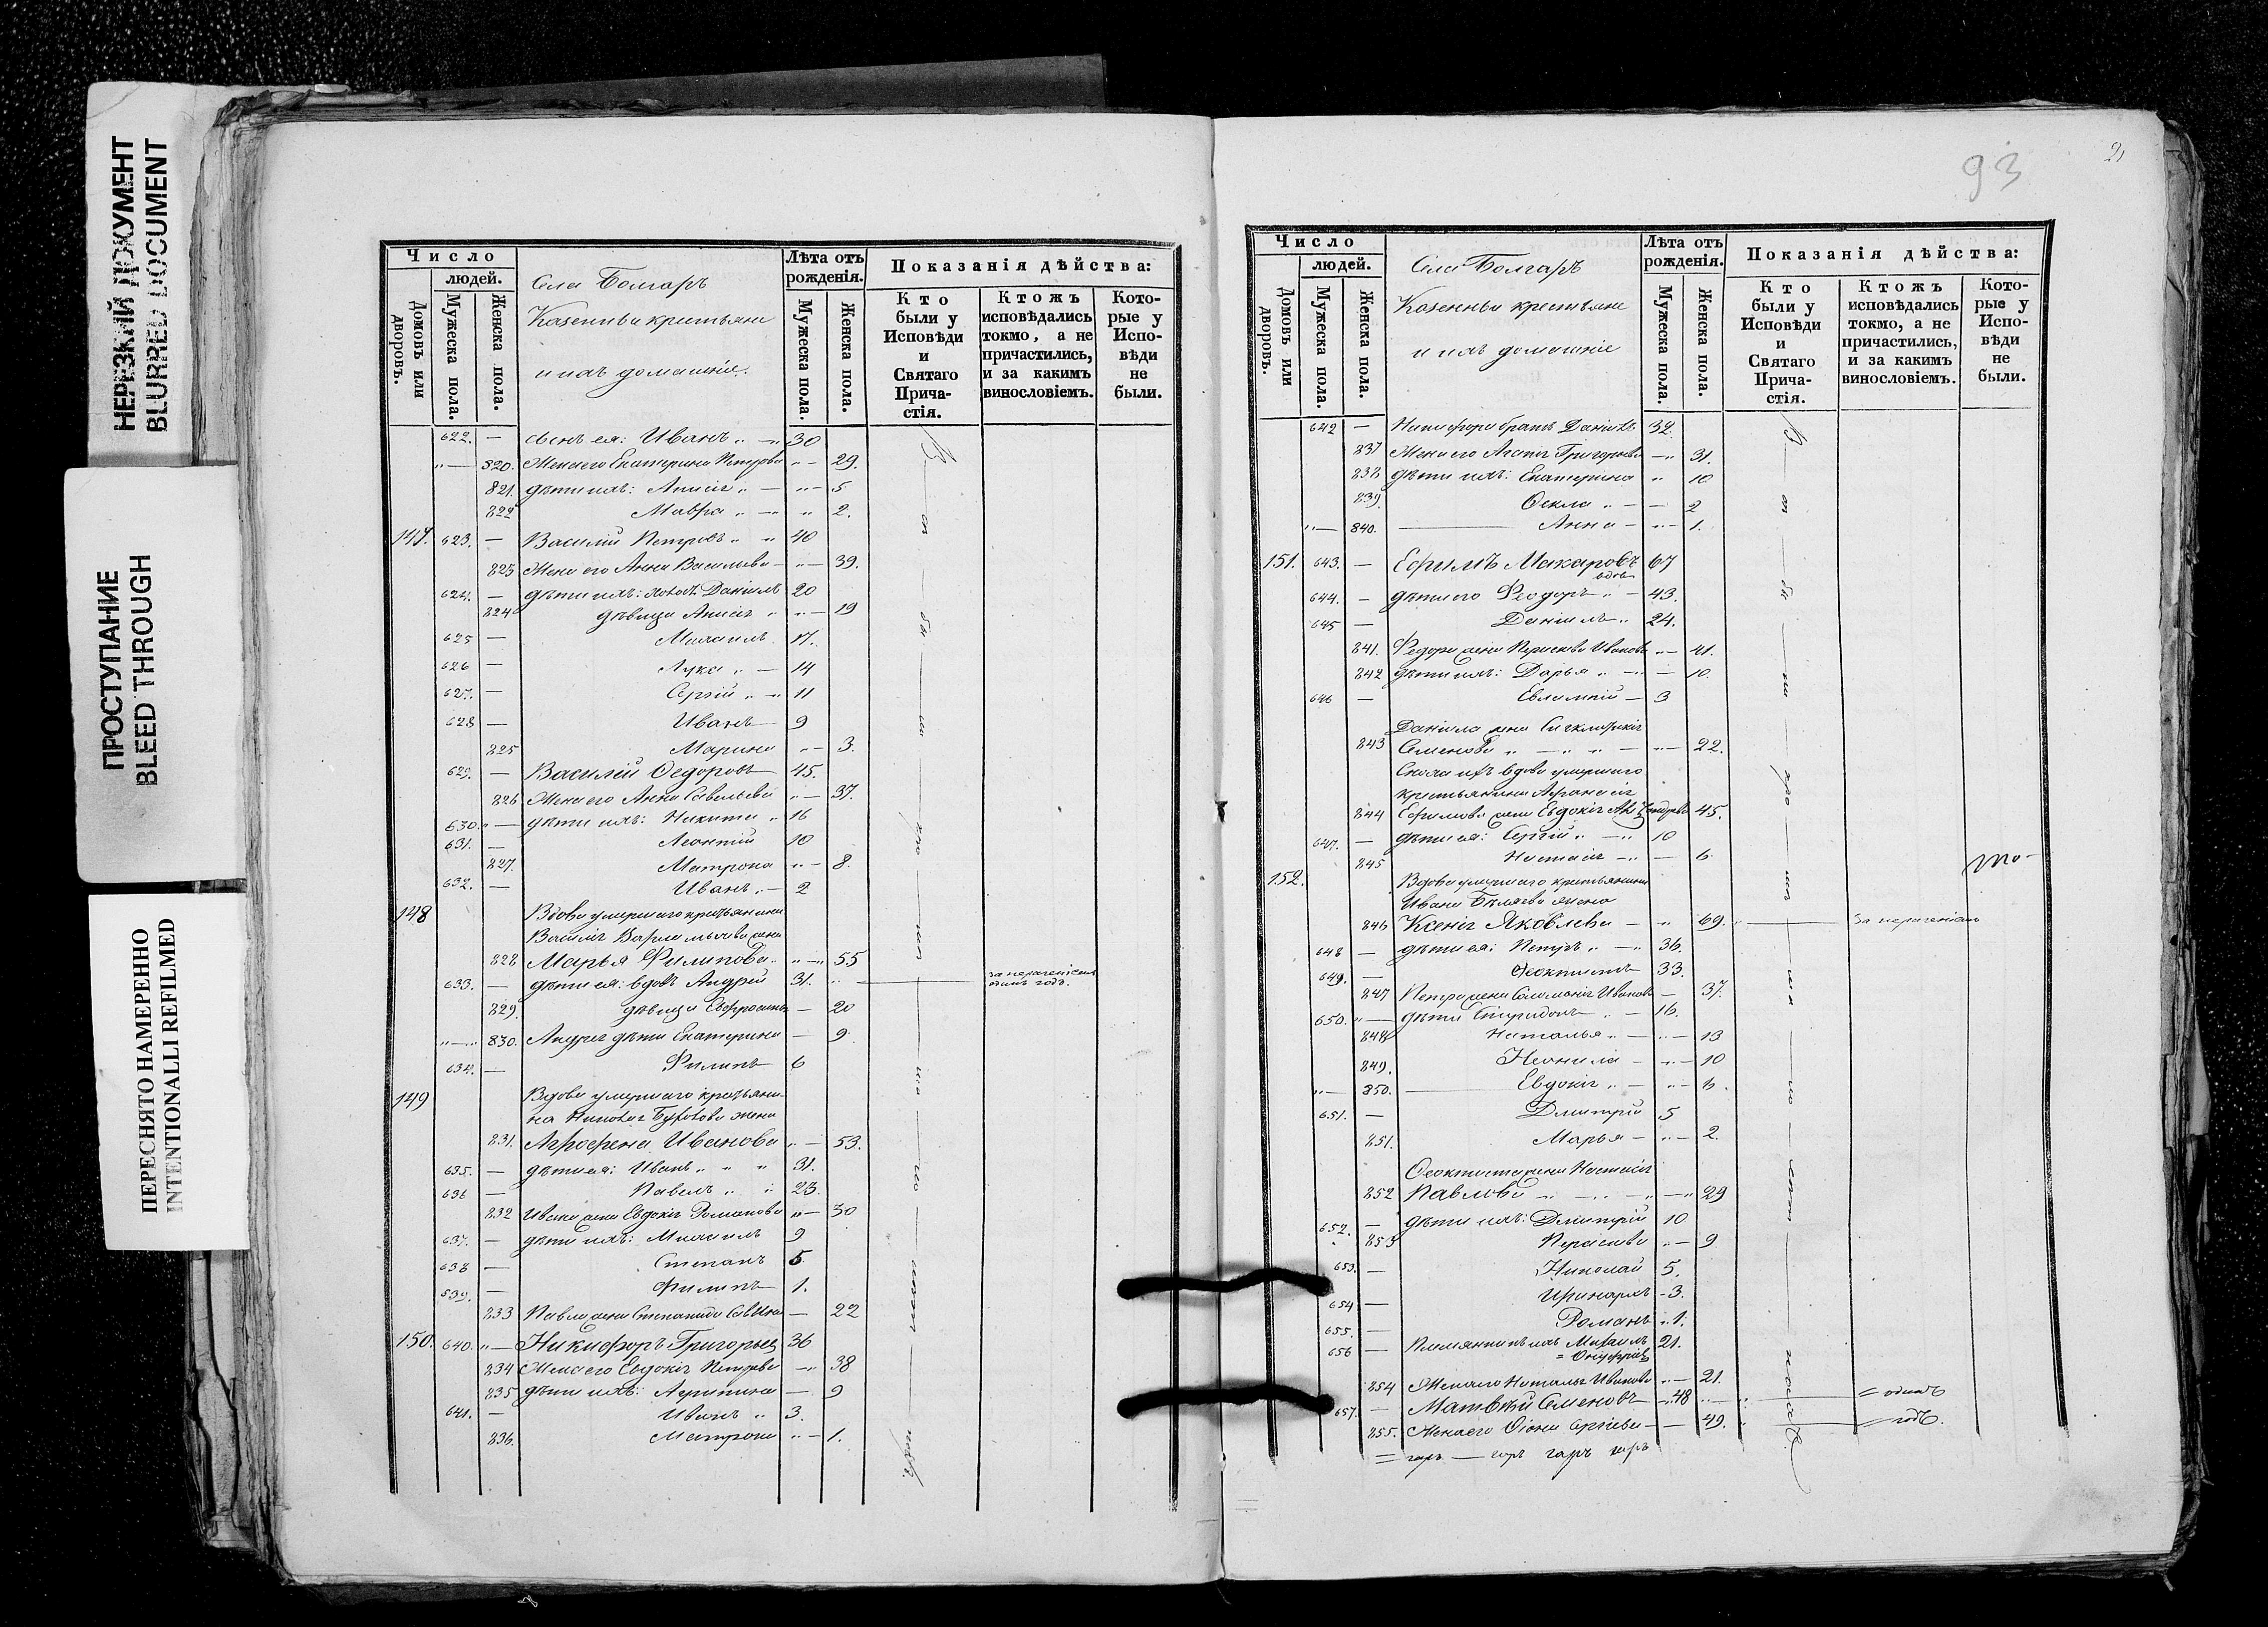 НЕРЕЗКИЙ ДОКУМЕНТ
BLURRED DOCUMENT
ПРОСТУПАНИЕ
BLEED THROUGH
ПЕРЕСНЯТО НАМЕРЕННО
INTENTIONALLI REFILMED
Число
людей.
Домовъ или дворовъ.
Мужеска пола.
Женска пола.
Села Болгаръ
Казенныи крестьяне
и ихъ домашніе.
Лѣта отъ рожденія.
Мужеска пола.
Женска пола.
Показанія дѣйства:
Кто были у Исповѣди и Святаго Прича-стія.
Ктожъ исповѣдались токмо, а не причастились, и за какимъ винословіемъ.
Кото-рые у Испо-вѣди не были.
622. — сынъ ея: Иванъ 30
820. Жена его Екатерина Петрова 29.
821. дѣти ихъ: Анисія 5
822 Мавра 2.
147. 623. — Василій Петровъ 40
823 Жена его Анна Васильева 39.
624. — дѣти ихъ: Даніилъ 20
824 дѣвица Анисія 19
625 — Михаилъ 17.
626 — Лука 14
627. — Сергій 11
628 — Иванъ 9
825 Марина 3.
629. — Василій Ѳедоровъ 45.
826 Жена его Анна Савельева 37.
630. — дѣти ихъ: Никита 16
631. — Леонтій 10
827. Матрона 8.
632. — Иванъ 2
148 Вдова умершаго крестьянина
828 Марья Филипова 55
633. — дѣти ея: вдовъ Андрей 31. за нераченіемъ одинъ годъ.
829. дѣвица 20
830. Андрея дѣти Екатерина 9
634. — Филипъ 6
149 Вдова умершаго крестьяни-
на жена
831. Агрофена Иванова 53.
635. — дѣти ея: Иванъ 31.
636 — Павелъ 23.
832 Ивана жена Евдокія Романова 30
637. — дѣти ихъ: Михаилъ 9
638 — Степанъ 5
639. — Филипъ 1.
833 Павла жена Степанида 22
150. 640. — Никифоръ Григорьев 36
834 Жена его Евдокія Петрова 38
835 дѣти ихъ: Агрипина 9
641. — Иванъ 3.
836. Матрона 1.
93
Число
людей.
Домовъ или дворовъ.
Мужеска пола.
Женска пола.
Села Болгаръ
Казенныи крестьяне
и ихъ домашніе
Лѣта отъ рожденія.
Мужеска пола.
Женска пола.
Показанія дѣйства:
Кто были у Исповѣди и Святаго Прича-стія.
Ктожъ исповѣдались токмо, а не причастились, и за какимъ винословіемъ.
Кото-рые у Испо-вѣди не были.
642 — Никифора братъ Даніилъ 32.
837 Жена его Григорьева 31.
838 дѣти ихъ: Екатерина 10
839. Ѳекла 2
840. Анна 1.
151. 643. — Ефимъ Макаровъ 67
вдовъ
644. — дѣти его Феодоръ 43.
645 — Даніилъ 24.
841. Федора жена Параскева Иванова 41.
842 дѣти ихъ: Дарья 10
646 — Евлампій 3
Даніила жена
843 Семенова 22.
Сноха ихъ вдова умершаго
крестьянина Афанасія
844 Ефимова жена Евдокія 45.
647. — дѣти ея: Сергій 10
845 Настасія 6
152. Вдова умершаго крестьянина
Ивана Бѣляева жена
846 Ксенія Яковлева 69. за нераченіемъ
648 — дѣти ея: Петръ 36.
649. — Феоктистъ 33.
847 Петра жена Соломонія Иванова 37.
650. — дѣти Спиридонъ 16.
848 Наталья 13
849. Неонила 10
850. Евдокія 6.
651. — Дмитрій 5
851. Марья 2.
Ѳеоктиста жена Настасія
852 Павлова 29
652. — дѣти ихъ: Дмитрій 10
853 Параскева 9
653. — Николай 5.
654 — Иринархъ 3.
655. — Романъ 1.
656 — Племянникъ ихъ Михаилъ 21.
854 Жена его Наталья Иванова 21.
657. — Матвѣй Семеновъ 48 = одинъ
855. Жена его Сергіева 49. = годъ.